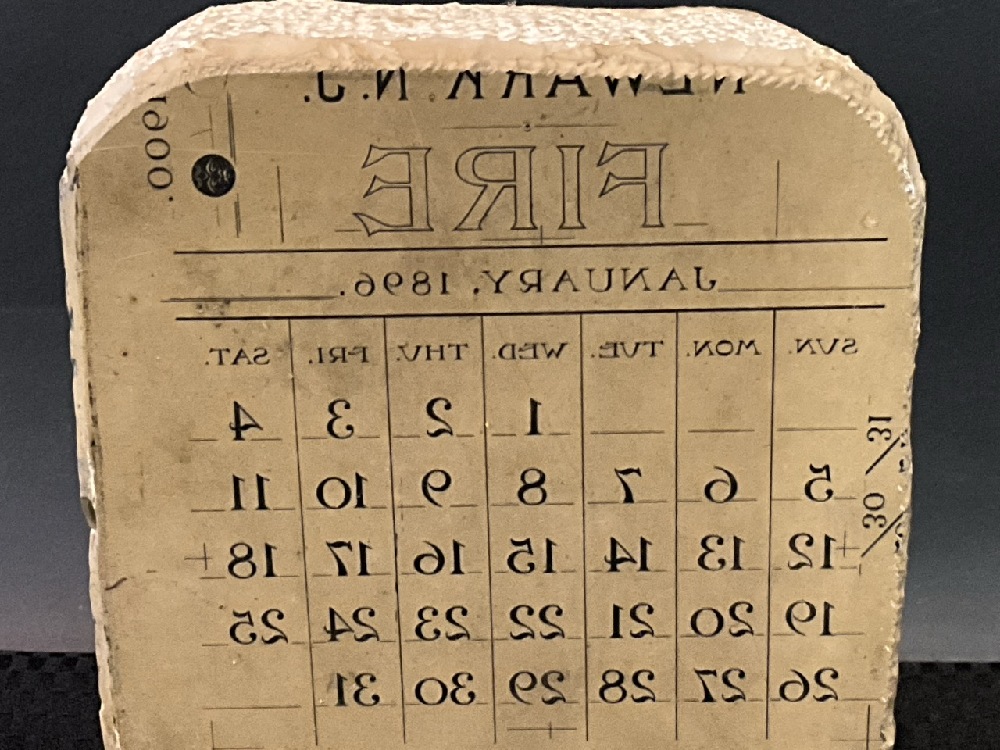 NEWARK, N.J.
FIRE
JANUARY, 1896.
SUN. MON. TUE. WED. THU. FRI. SAT.
1 2 3 4
5 6 7 8 9 10 11
12 13 14 15 16 17 18
19 20 21 22 23 24 25
26 27 28 29 30 31
1900.
31
30